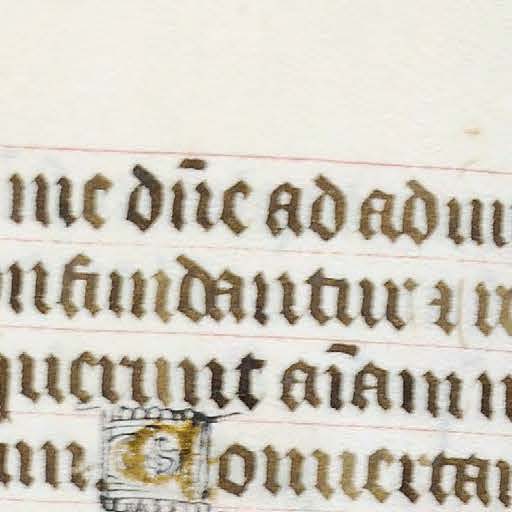 me dñe ad adiu
onfundantur ⁊ re
querunt aīam m
am. Conuertan